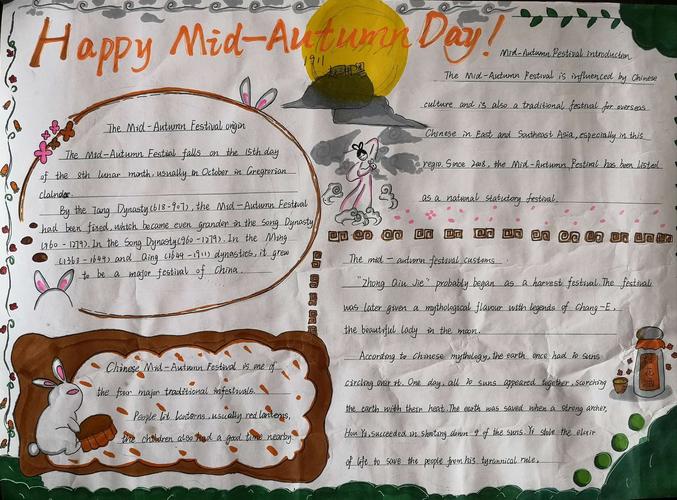 Happy Mid-Autumn Day!
1911
The Mid-Autumn Festival origin
The Mid-Autumn Festial falls on the 15th day
of the 8th lunar month, usually in October in Gregorian
calndar.
By the Tang Dynasty(618-907), the Mid-Autumn Festival
had been fixed, which became even grander in the Song Dynasty
(960-1279). In the Song Dynasty(960-1279). In the Ming
(1368-1644) and Qing (1644-1911) dynasties, it grew
to be a major festival of China.
Chinese Mid-Autumn Festival is one of
the four major traditional infestivals.
People lit lanterns, usually red lanterns,
the children also had a good time nearby.
Mid-Autumn Festival introduction
The Mid-Autumn Festival is influenced by Chinese
culture and is also a traditional festival for overseas
Chinese in East and Southeast Asia, especially in this
regio. Since 2008, the Mid-Autumn Festival has been listed
as a national statutory festival.
The mid-autumn festival customs.
"Zhong Qiu Jie" probably began as a harvest festival. The festival
was later given a mythological flavour with legends of Chang-E,
the beautiful lady in the moon.
According to Chinese mythology, the earth once had 10 suns
circling over it. One day, all 10 suns appeared together, scorching
the earth with their heat. The earth was saved when a strong archer,
Hou Yi, succeeded in shooting down 9 of the suns. Yi stole the elixir
of life to save the people from his tyrannical rule.
花酒